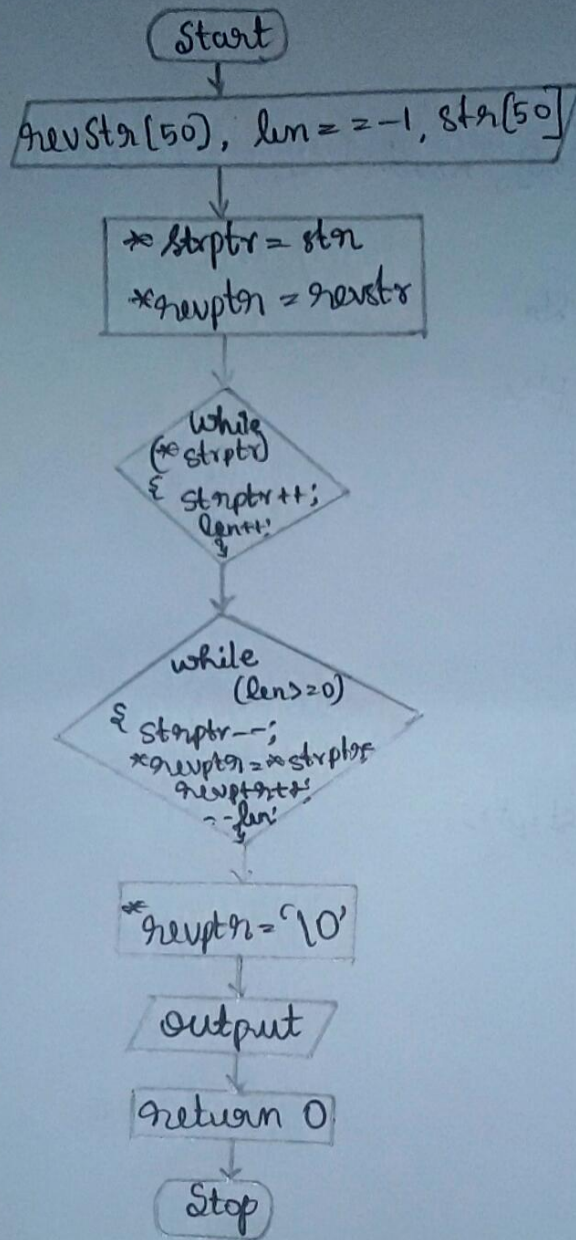 Start
revStr[50], len = = -1, str[50]
* strptr = str
*revptr = revstr
while
(* strptr)
{ strptr++;
len++;
}
while
(len>=0)
{ strptr--;
*revptr = * strptr;
revptr++;
--len;
}
*revptr = '\0'
output
return 0
Stop